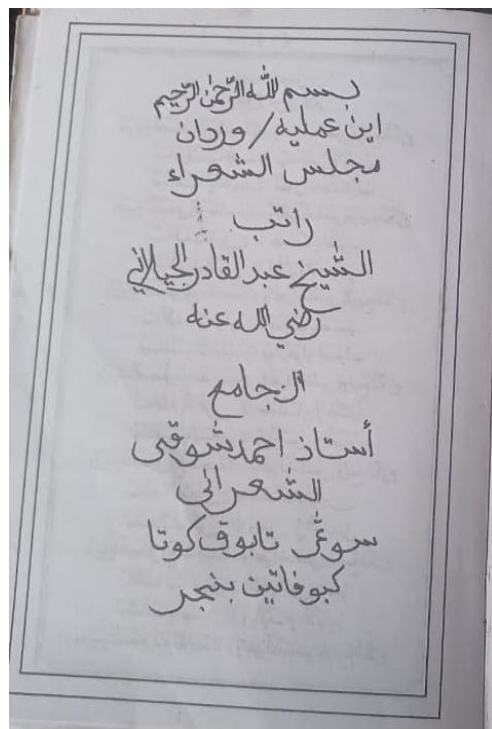 بسم الله الرّحمٰن الرّحيم
اين عمليه / وردان
مجلس الشعراء
راتب
الشيخ عبد القادر الجيلاني
رضي الله عنه
الجامع
أستاذ احمد شوقي
الشعراني
سوڠي تابوق كوتا
كبوفاتين بنجر